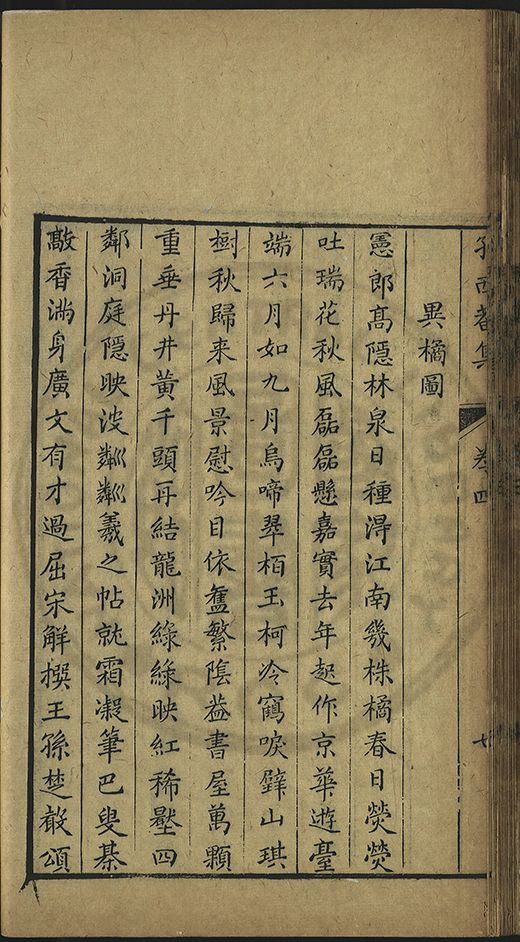 西菴集 卷四
異橘圖
憲郎髙隱林泉日種淂江南幾株橘春日熒熒
吐瑞花秋風磊磊懸嘉實去年起作京華遊臺
端六月如九月烏啼翠栢玉柯冷鶴唳璧山琪
樹秋歸来風景慰吟目依舊繁陰葢書屋萬顆
重垂丹井黄千頭再結龍洲綠綠映紅稀壓四
鄰洞庭隱映波粼粼羲之帖就霜凝筆巴叟棊
敲香滿身廣文有才過屈宋觧撰王孫楚敢頌